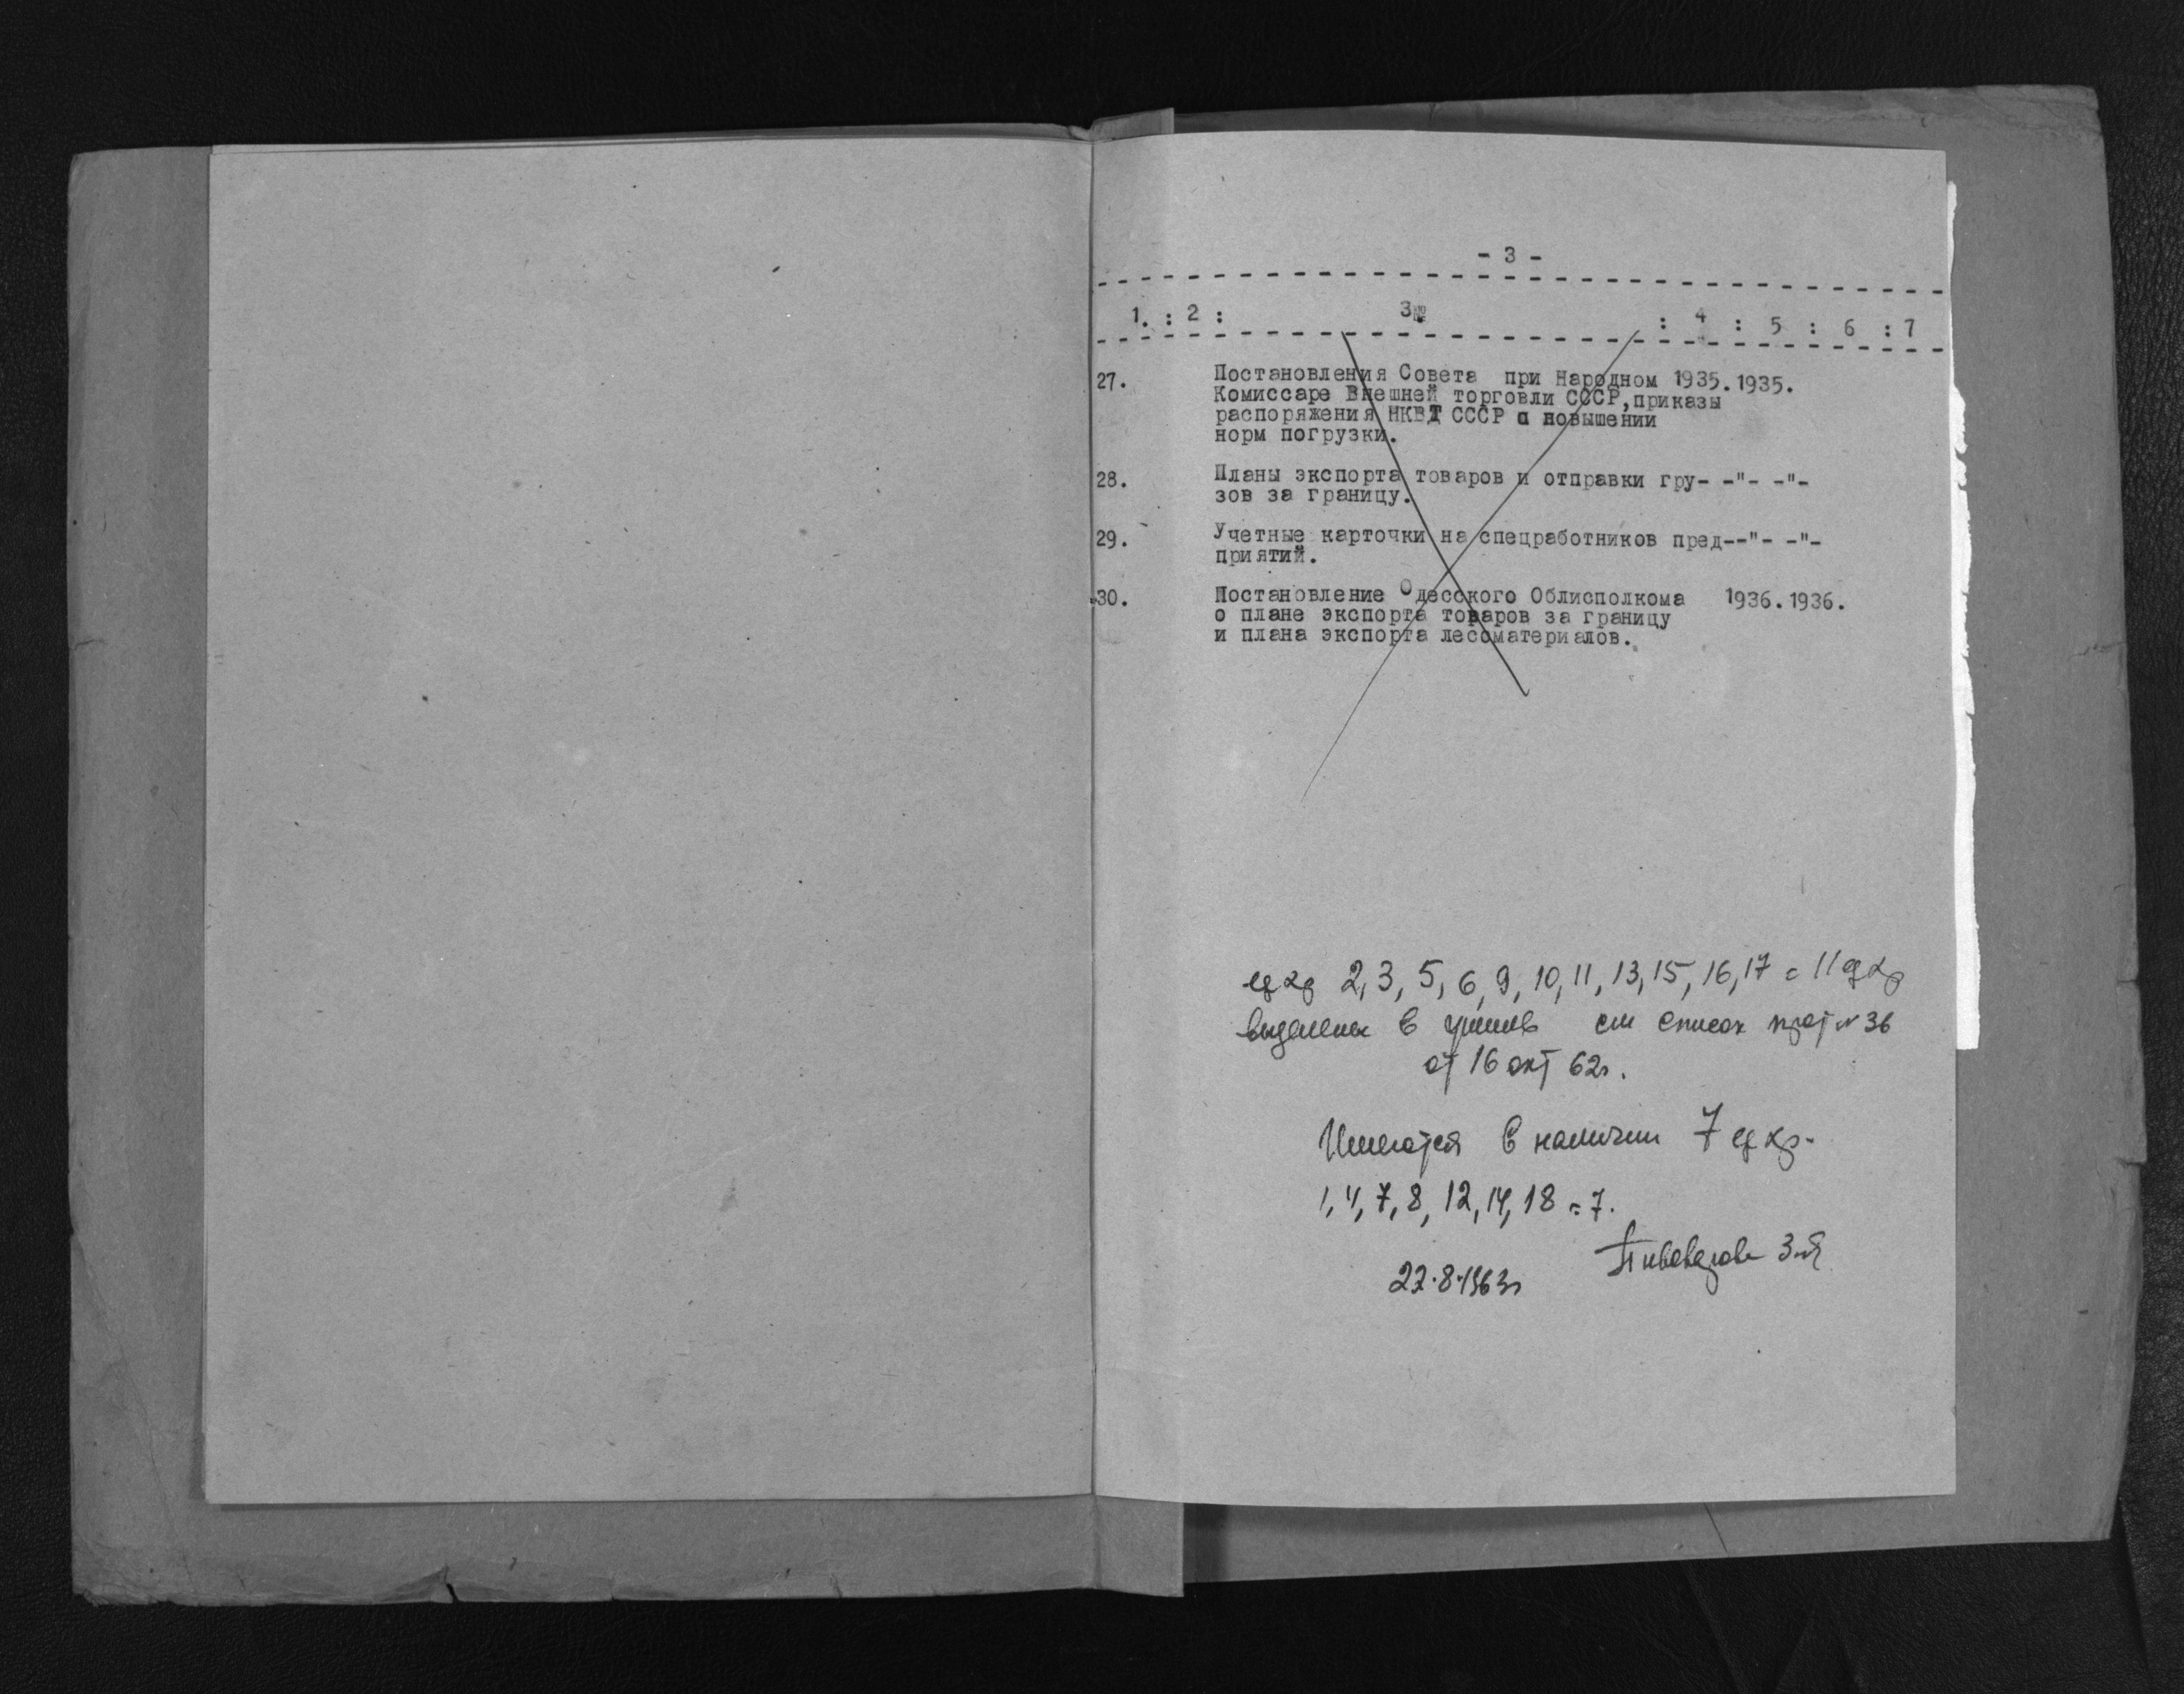 - 3 -
1. : 2 : 3. : 4 : 5 : 6 : 7
27. Постановления Совета при Народном 1935. 1935.
Комиссаре Внешней торговли СССР, приказы
распоряжения НКВТ СССР о повышении
норм погрузки.
28. Планы экспорта товаров и отправки гру- -"- -"-
зов за границу.
29. Учетные карточки на спецработников пред--"- -"-
приятий.
30. Постановление Одесского Облисполкома 1936. 1936.
о плане экспорта товаров за границу
и плана экспорта лесоматериалов.
ед хр 2, 3, 5, 6, 9, 10, 11, 13, 15, 16, 17 = 11 ед хр
выделены в см список прот № 36
от 16 окт 62г.
Имеются в наличии 7 ед хр.
1, 4, 7, 8, 12, 14, 18 = 7.
22.8.1963г